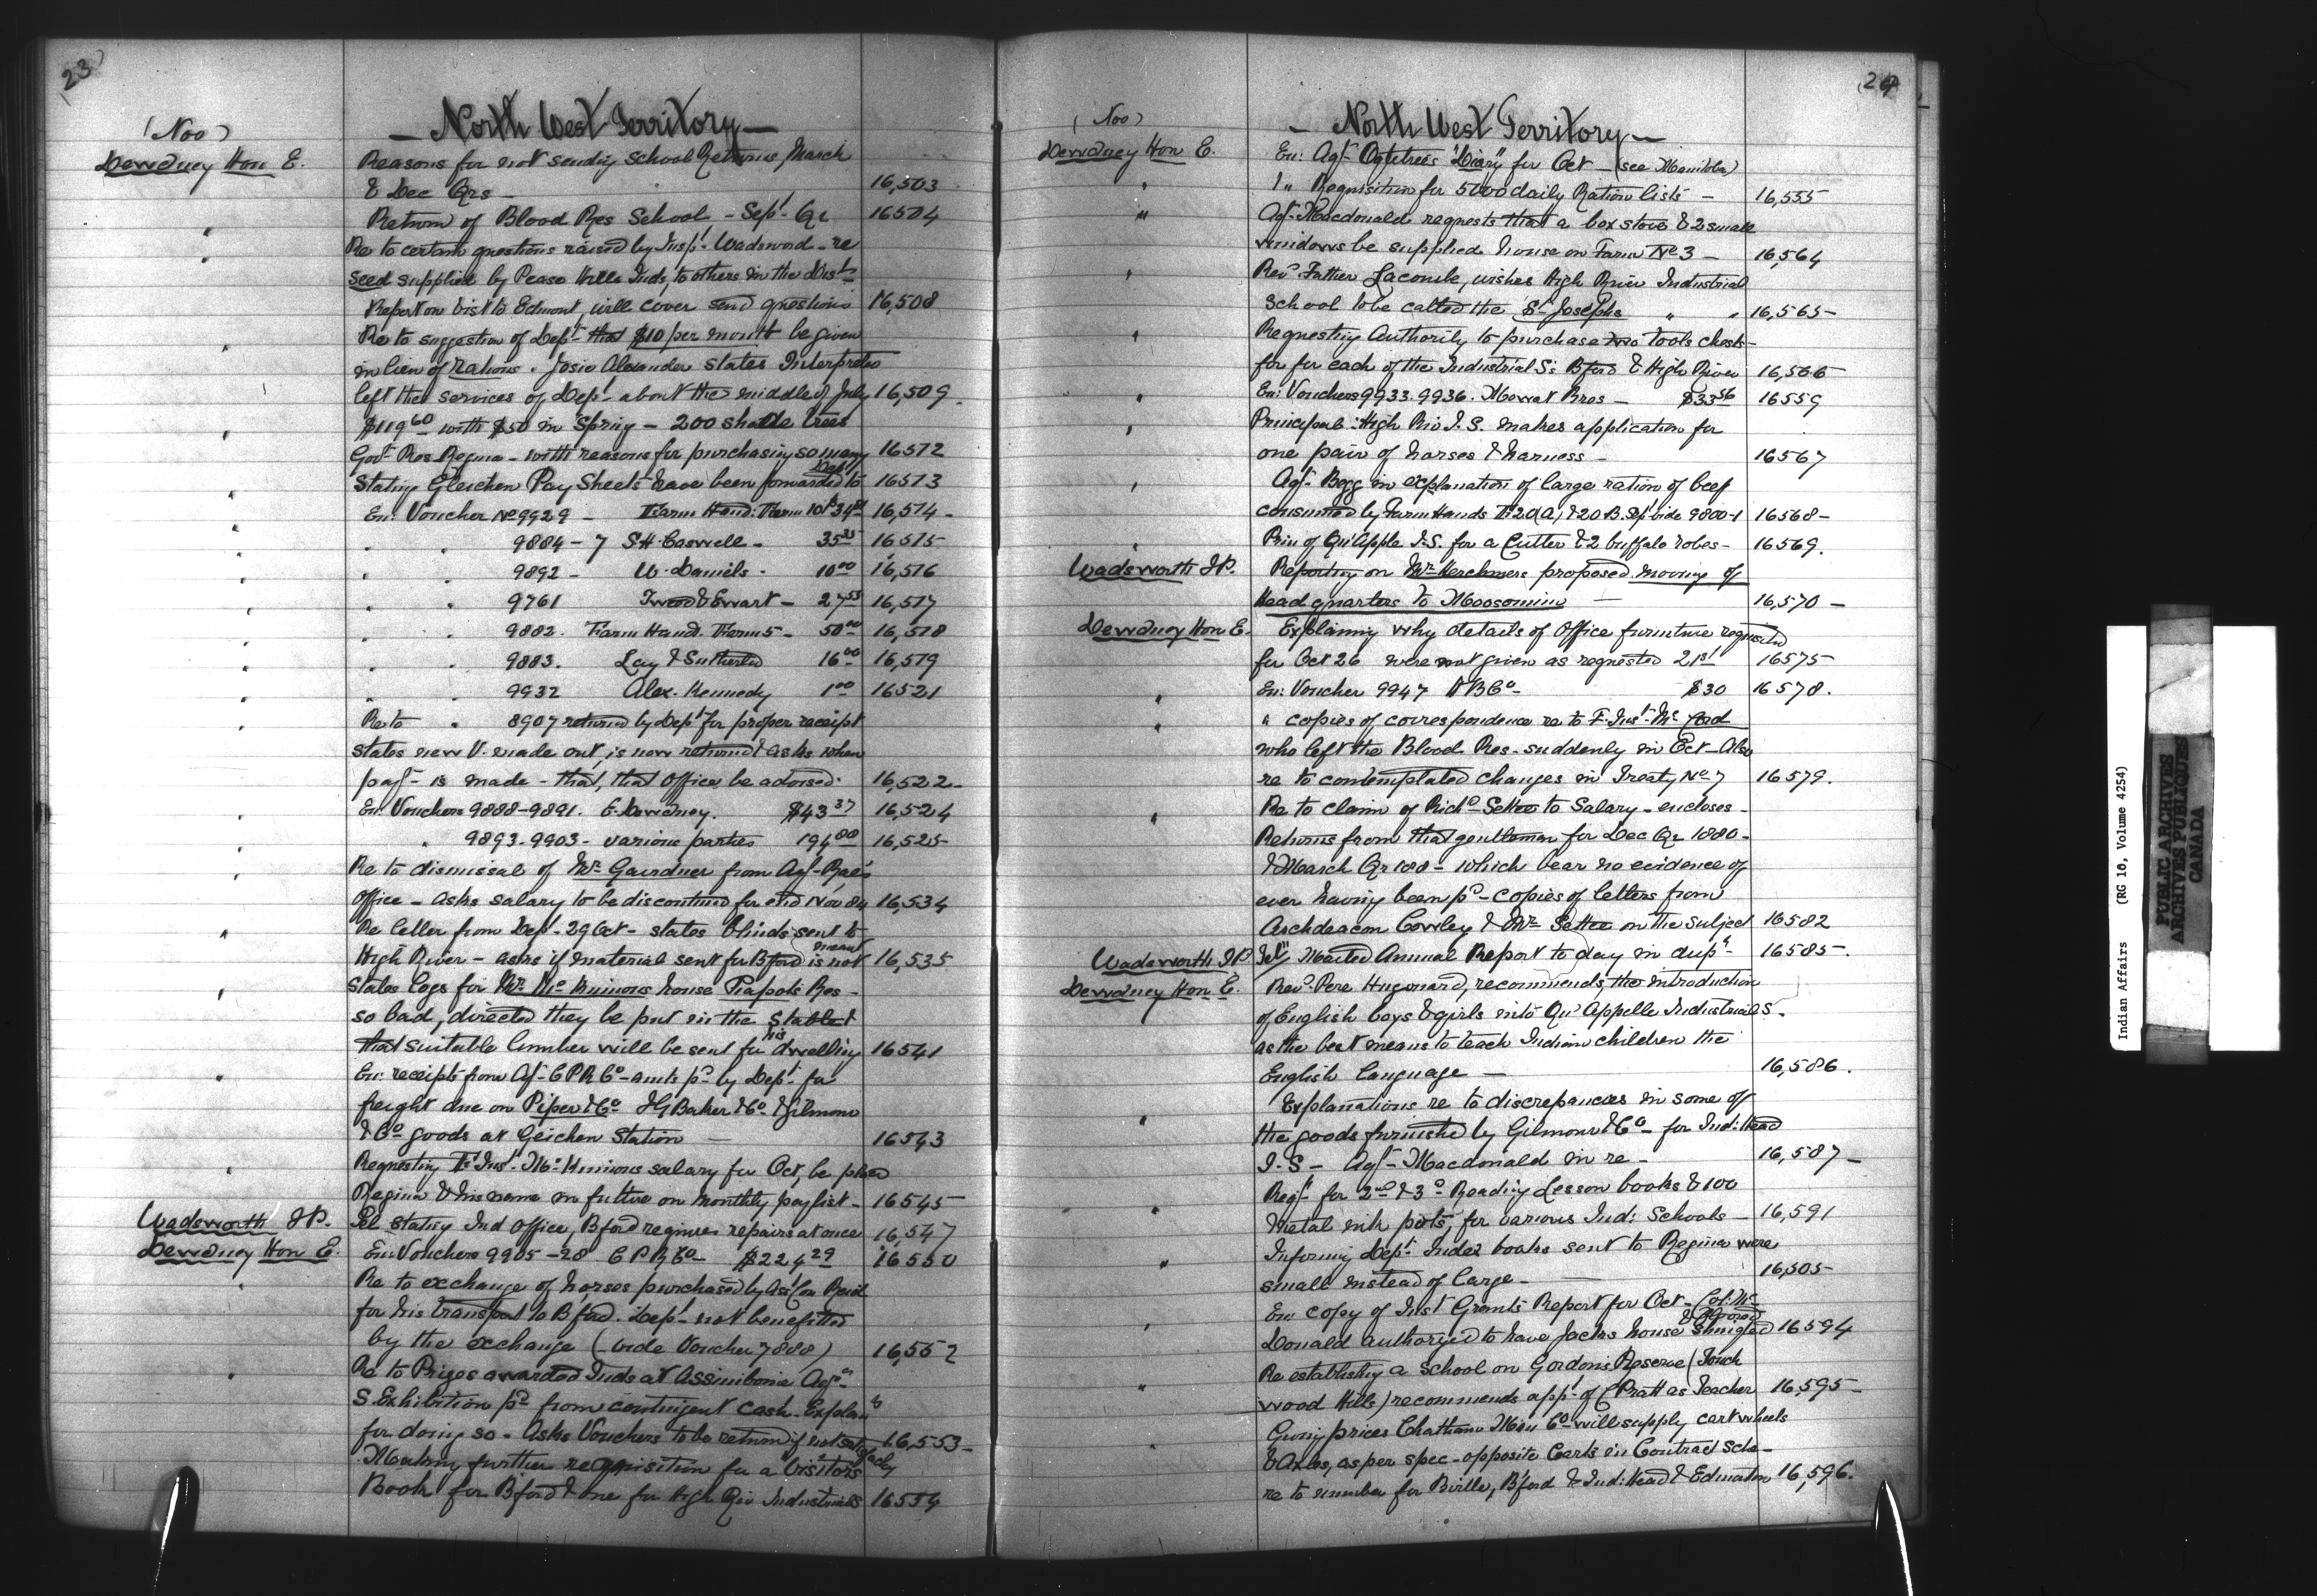 23
(Nov)
— North West Territory —
Dewdney Hon E.
Reasons for not sending School Returns, March
& Dec Qrs — 16,503
" Return of Blood Res School - Sept. Qr 16504
" Re to certain questions raised by Insp. Wadsword - re
seed supplied by Pease Hills Inds, to others in the Dist.
Report on vist to Edmont, will cover send questions 16,508
" Re to suggestion of Dept. that $10 per month be given
in lieu of rations. Josie Alexander states Interpreter
left the services of Dept. about the middle of July 16,509
" $119 60 with $50 in Spring - 200 shade trees
Govt. Res. Regina - with reasons for purchasing so many 16512
" Stating Gleichen Pay Sheets have been forwarded to Dept. 16513
" En: Voucher No 9929 - Farm Hand: Farm 10 16,514 -
" " " 9884 - 7 S.H. Caswell - 35 16515
" " " 9892 - W. Daniels - 10 00 16,516
" " " 9761 & Ewart - 27 55 16,517
" " " 9882. Farm Hand. Farm 5 - 50 00 16,518
" " " 9883. Lay & Sutherld 16 00 16,519
" " " 9932 Alex. Kennedy 1 00 16521
" Re to " 8907 returned by Dept for proper receipt
states new V. made out, is now returned & asks when
payt is made - that, that Office be advised. 16,522 -
" En: Vouchers 9888-9891. E. Dewdney. $43 37 16,524
" " 9893-9903 - various parties 194 00 16,525
" Re to dismissal of Mr. Gairdner from Agt. Rae's
Office - asks salary to be discontinued for end Nov 84 16,534
" Re letter from Dept. 29 Oct - states blinds sent to
High River - asks if material sent for Bford is not meant 16,535
" States logs for Mr. McKinnons house Piapots Res -
so bad, directed they be put in the Stable &
that suitable lumber will be sent for his dwelling 16541
" En: receipts from Agt. C P R Co - amts pd by Dept. for
freight due on Piper & Co. J G Baker & Co. & Gilmour
& Co goods at Geichen Station — 16543
" Requesting F. Inst. McKinnons salary for Oct, be placed
Regina & his name in future on monthly pay list - 16545
Wadsworth J P. Tel stating Ind Office, Bford requires repairs at once 16,547
Dewdney Hon E. En: Vouchers 9905-28 C P R Co - $224 29 16550
" Re to exchange of horses purchased by Asst Com Reid
for his transport to Bford. Dept. not benefitted
by the exchange (vide Voucher 7888) 16,552
" Re to Prizes awarded Inds at Assiniboia Agr.
S. Exhibition pd from contingent cash - Explans
for doing so - Asks Vouchers to be return if not satisfacty 16,553 -
Making further requisition for a Visitors
Book for Bford & one for High Riv Industrials 16554
24
(Nov)
— North West Territory —
Dewdney Hon E. En: Agt. Ogletrees "Diary" for Oct - (see Manitoba)
" 1 " Requisition for 5000 daily Ration lists - 16,555
" Agt. Macdonald requests that a box stove & 2 small
windows be supplied house on Farm No 3 - 16,564
" Revd. Father Lacombe, wishes High River Industrial
School to be called the St. Josephs " " 16,565 -
" Requesting Authority to purchase two tools chests -
for for each of the Industrial S: Bford & High River 16,566
" En: Vouchers 9933-9936. Mowat Bros - $33 56 16559
" Principal: High Riv I. S. makes application for
one pair of horses & harness - 16567
" Agt. Begg in explanation of large ration of beef
consumed by Farm Hands F: 20(A) & 20 B. vide 9800-1 16568 -
" Prin of Qu'Apple I.S. for a Cutter & 2 buffalo robes - 16569.
Wadsworth J P. Reporting on Mr Herchmers proposed moving of
Head quarters to Moosomin — 16,570 -
Dewdney Hon E. Explaining why details of Office furniture requested
for Oct 26 were not given as requested 21st 16575 -
" En: Voucher 9947 H B Co - $30 16578.
" " copies of correspondence re to F. Inst. McCord
who left the Blood Res - suddenly in Oct - Also
re to contemplated changes in Treaty No 7 16579.
" Re to claim of Richd Settee to Salary - encloses -
Returns from that gentleman for Dec Qr 1880 -
& March Qr 188 - which bear no evidence of
ever having been pd - copies of letters from
Archdeacon Cowley & Mr. Settee on the subject 16582
Wadsworth J P. Tel / Mailed Annual Report to day in dup. 16585 -
Dewdney Hon E. Revd. Pere Hugonard, recommends, the introduction
of English boys & girls into Qu'Appelle Industrial S.
as the best means to teach Indian children the
English Language — 16,586.
" Explanations re to discrepancies in some of
the goods furnished by Gilmour & Co - for Ind: Head
I. S - Agt. Macdonald in re - 16,587 -
" Reqt. for 2nd & 3d Reading Lesson books & 100
Metal ink pots, for various Ind: Schools - 16,591
" Informing Dept. Index books sent to Regina were
small instead of large - — 16,505 -
" En: copy of Inst Grants Report for Oct - Col: Mc
Donald authorized to have Jacks house shingled & floored 16594
" Re establishing a School on Gordon's Reserve (Touch
wood Hills) recommends appt. of Pratt as Teacher 16,595 -
" Giving prices Chatham Man Co. will supply cart wheels
& Axles, as per spec - opposite Carts in Contract Sche -
re to number for Birtle, Bford & Ind: Head & Edmonton 16,596.
Indian Affairs (RG 10, Volume 4254)
PUBLIC ARCHIVES
ARCHIVES PUBLIQUES
CANADA